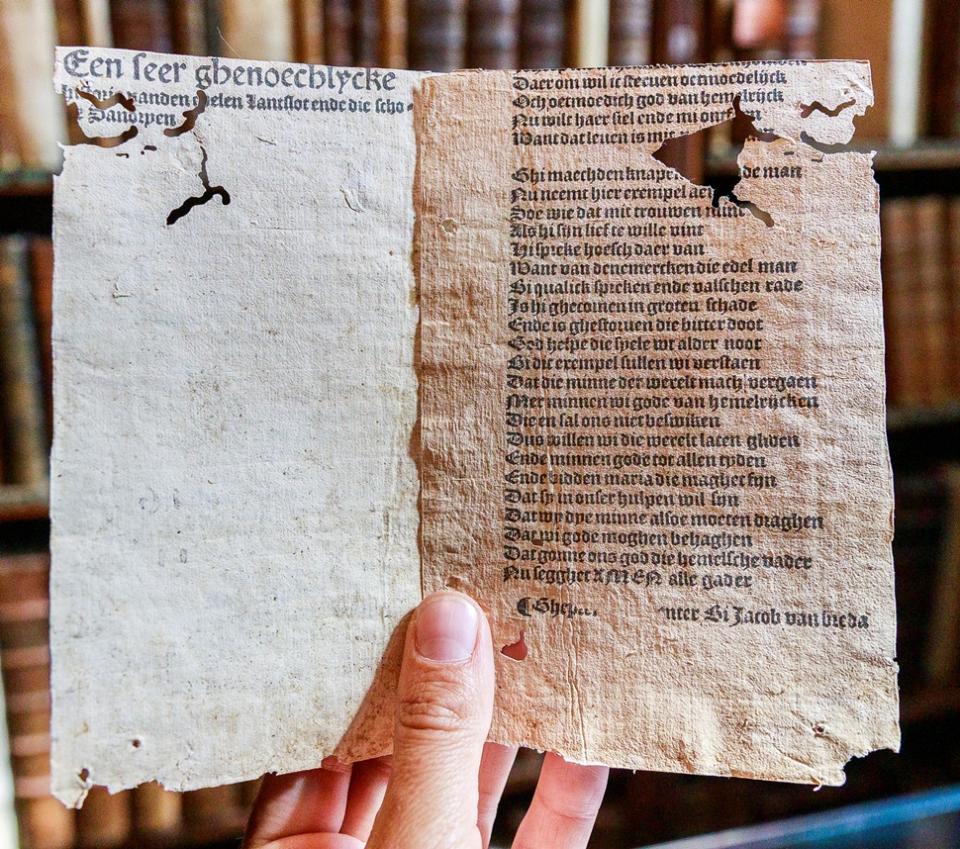 Een seer ghenoechlycke
vanden edelen Lantslot ende die scho-
Sandrpen
Daer om wil ic steruen oetmoedelijck
Och oetmoedich god van hemelrijck
Nu wilt haer siel ende mi
Want dat leuen is
Ghi maechden de man
Nu neemt hier exempel
Soe wie dat mit trouwen mint
Als hi sijn lief te wille vint
Hi spreke hoesch daer van
Want van denemercken die edel man
Bi qualick spreken ende valschen rade
Is hi ghecomen in groten schade
Ende is ghestoruen die bitter doot
God helpe die syele wt alder noot
Bi dit exempel sullen wi verstaen
Dat die minne der werelt mach vergaen
Mer minnen wi gode van hemelrijcken
Die en sal ons niet beswiken
Dus willen wi die werelt laten gliden
Ende minnen gode tot allen tyden
Ende bidden maria die maghet fyn
Dat sy in onser hulpen wil sijn
Dat wy dye minne alsoe moeten draghen
Dat wi gode moghen behaghen
Dat gonne ons god die hemelsche vader
Nu segghet AMEN alle gader
nter Bi Jacob van breda